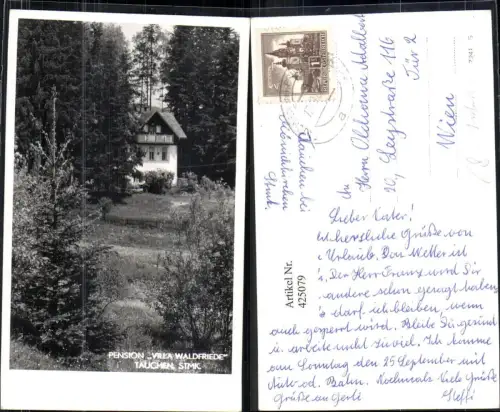 PENSION „VILLA WALDFRIEDE"
TAUCHEN, STMK.
Tauchen bei
Mönichkirchen
Stmk.
An
Herrn Adalbert
20, Leystraße 116
Tür 2
Wien
Artikel Nr.
425079
Lieber Vater!
herzliche Grüße von
Urlaub. Das Wetter ist
Der Herr Franz wird Dir
andere schon gesagt haben
darf ich bleiben, wenn
auch gesperrt wird. Bleibe Du gesund
u. arbeite nicht zu viel. Ich komme
am Sonntag den 25 September mit
Auto od. Bahn. Nochmals viele Grüße
Grüße an Gerti
Steffi